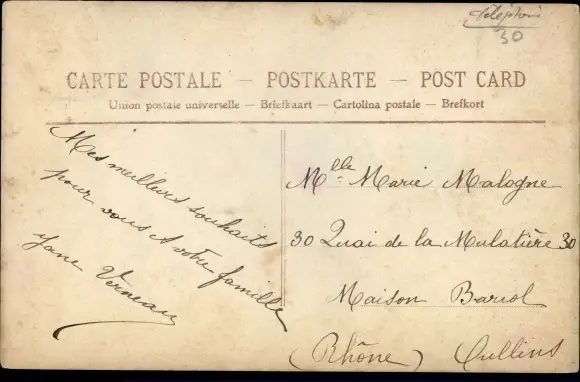 30
CARTE POSTALE — POSTKARTE — POST CARD
Union postale universelle — Briefkaart — Cartolina postale — Brefkort
Mes meilleurs souhaits
pour vous et votre famille
Jane Verneau
Mlle Marie Malogne
30 Quai de la Mulatière 30
Maison Bariol
(Rhône) Oullins